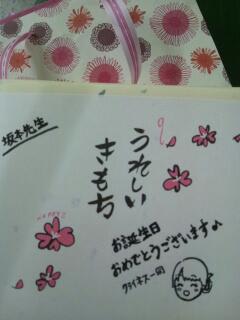 坂本先生
うれしい
きもち
HAPPY!!
お誕生日
おめでとうございます♪
クライネス一同